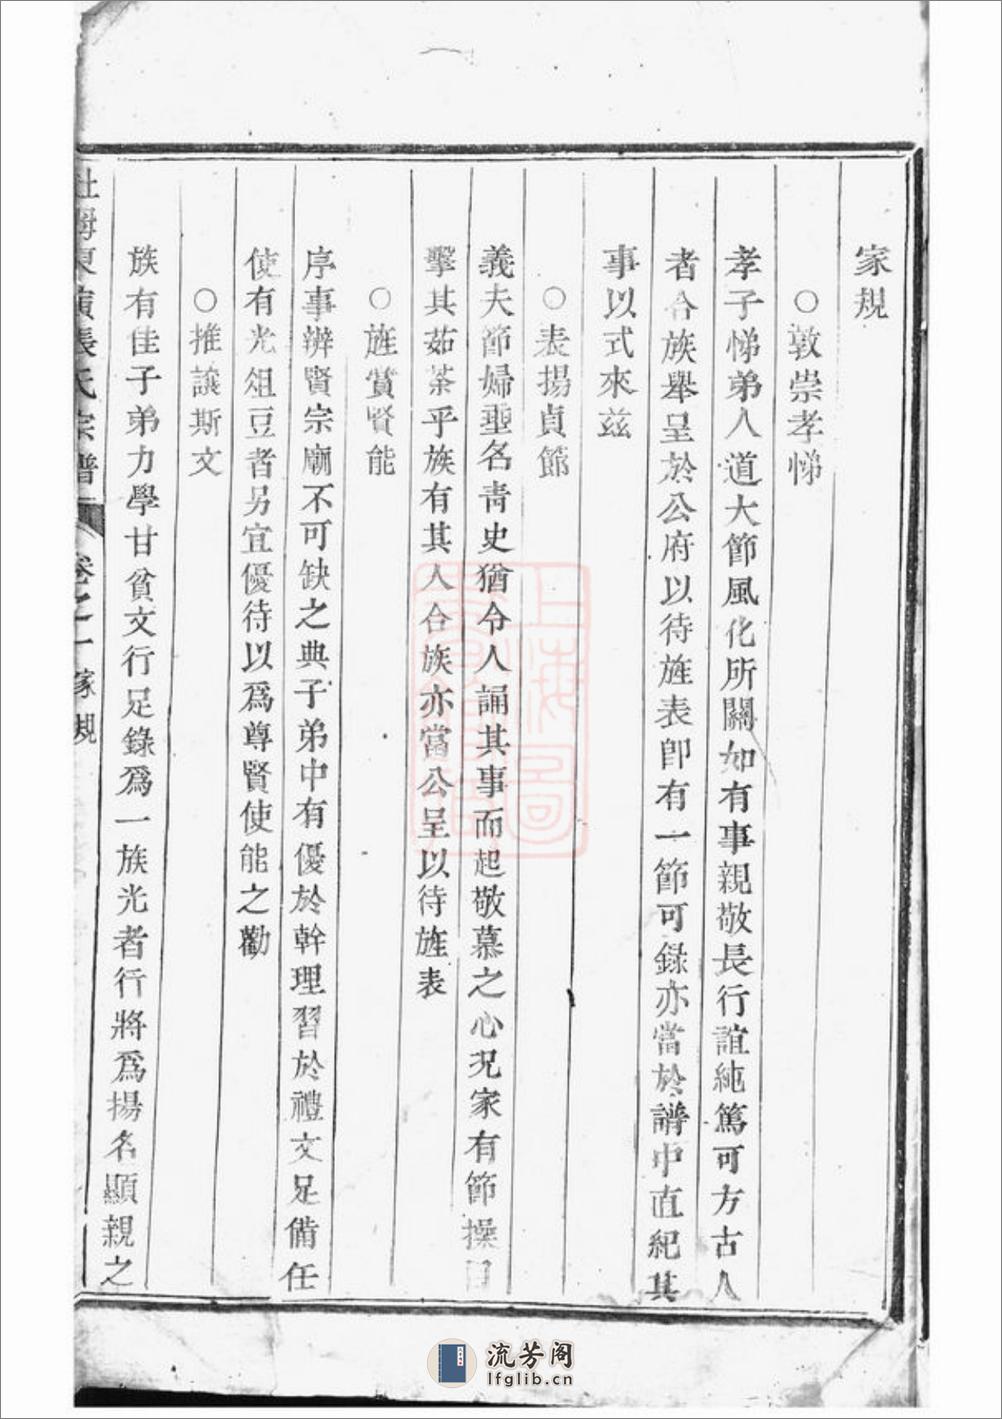 家規
○敦崇孝悌
孝子悌弟人道大節風化所關如有事親敬長行誼純篤可方古人
者合族舉呈於公府以待旌表卽有一節可錄亦當於譜中直紀其
事以式來兹
○表揚貞節
義夫節婦垂名靑史猶令人誦其事而起敬慕之心况家有節操目
擊其茹荼乎族有其人合族亦當公呈以待旌表
○旌賞賢能
序事辨賢宗廟不可缺之典子弟中有優於幹理習於禮文足備任
使有光俎豆者另宜優待以爲尊賢使能之勸
○推讓斯文
族有佳子弟力學甘貧文行足錄爲一族光者行將爲揚名顯親之
東 張氏宗譜 卷之一 家規
上海圖書館藏
流芳阁
lfglib.cn